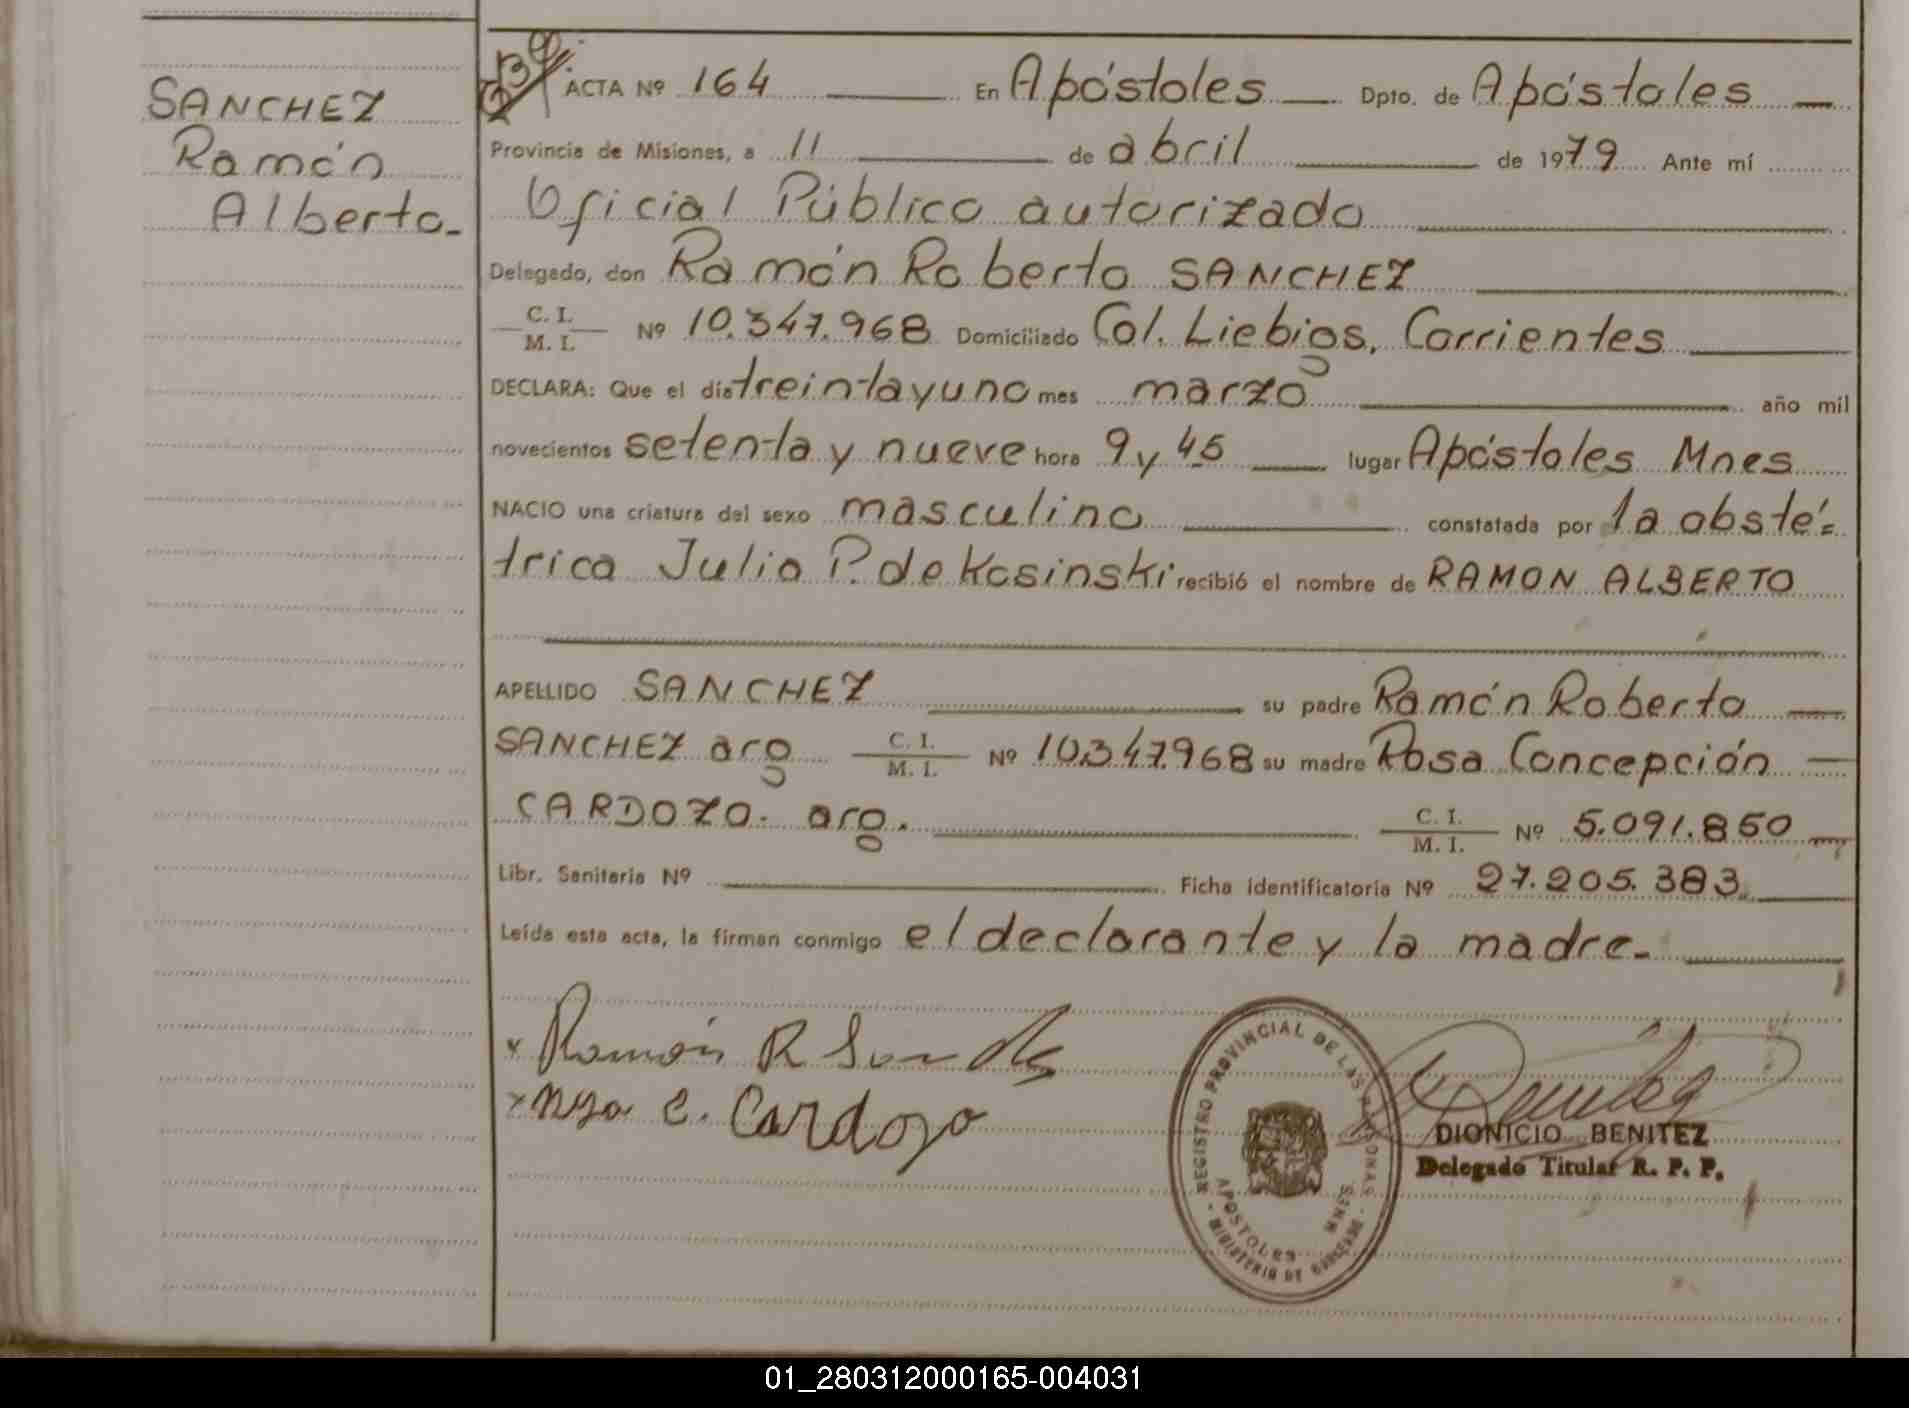 SANCHEZ
Ramón
Alberto.-
239
ACTA Nº 164 En Apóstoles Dpto. de Apóstoles
Provincia de Misiones, a 11 de abril de 1979 Ante mí
Oficial Público autorizado
Delegado, don Ramón Roberto SANCHEZ
C. I.
M. I. Nº 10.347.968 Domiciliado Col. Liebigs, Corrientes
DECLARA: Que el día treintayuno mes marzo año mil
novecientos setenta y nueve hora 9 y 45 lugar Apóstoles Mnes
NACIO una criatura del sexo masculino constatada por la obsté=
trica Julia P. de Kosinski recibió el nombre de RAMON ALBERTO
APELLIDO SANCHEZ su padre Ramón Roberto
SANCHEZ arg C. I. M. I. Nº 10.347.968 su madre Rosa Concepción
CARDOZO. arg. C. I. M. I. Nº 5.091.850
Libr. Sanitaria Nº Ficha identificatoria Nº 27.205.383
Leída esta acta, la firman conmigo el declarante y la madre.-
x Ramón R
x C. Cardozo
REGISTRO PROVINCIAL DE LAS PERSONAS
APOSTOLES MNES.
- MINISTERIO DE GOBIERNO -
DIONICIO BENITEZ
Delegado Titular R. P. P.
01_280312000165-004031